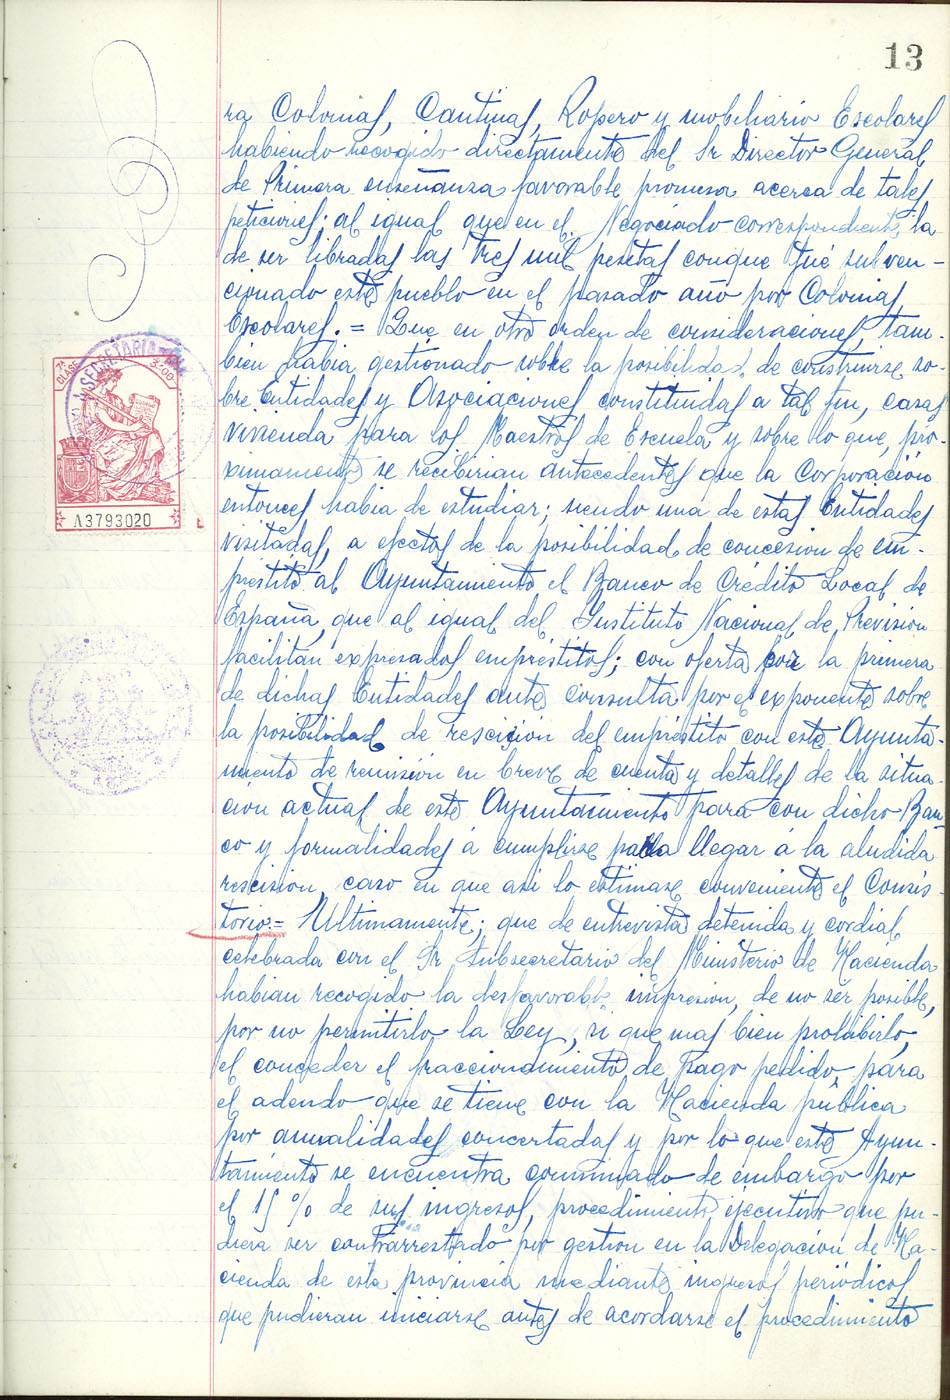 13
ra Colonias, Cantinas, Ropero y mobiliario Escolares
habiendo recogido directamente del Sr Director General
de Primera enseñanza favorable promesa acerca de tales
peticiones; al igual que en el Negociado correspondiente, la
de ser libradas las tres mil pesetas conque fué subven-
cionado este pueblo en el pasado año por Colonias
Escolares. = Que en otro orden de consideraciones, tam-
bien habia gestionado sobre la posibilidad de construirse so-
bre Entidades y Asociaciones constituidas a tal fin, casas
vivienda para los Maestros de Escuela y sobre lo que, pro-
ximamente se recibirian antecedentes que la Corporación
entonces habia de estudiar; siendo una de estas Entidades
visitadas, a efectos de la posibilidad de concesion de em-
prestito al Ayuntamiento el Banco de Crédito Local de
España, que al igual del Instituto Nacional de Prevision
facilitan expresados empréstitos; con oferta por la primera
de dichas Entidades ante consulta por el exponente sobre
la posibilidad de rescisión del empréstito con este Ayunta-
miento de remisión en breve de cuenta y detalles de la situa-
cion actual de este Ayuntamiento para con dicho Ban
co y formalidades á cumplirse para llegar á la aludida
rescision, caso en que asi lo estimase conveniente el Consis-
torio. = Ultimamente; que de entrevista detenida y cordial
celebrada con el Sr Subsecretario del Ministerio de Hacienda
habian recogido la desfavorable impresion, de no ser posible,
por no permitirlo la Ley, si que mas bien prohibirlo,
el conceder el fraccionamiento de pago pedido, para
el adeudo que se tiene con la Hacienda pública
por anualidades concertadas y por lo que este Ayun-
tamiento se encuentra conminado de embargo por
el 15 % de sus ingresos, procedimiento ejecutivo que pu-
diera ser contrarrestado por gestion en la Delegacion de Ha-
cienda de esta provincia mediante ingresos periódicos
que pudieran iniciarse antes de acordarse el procedimiento
7ª CLASE
3'00
SECRETARIA
A3793020